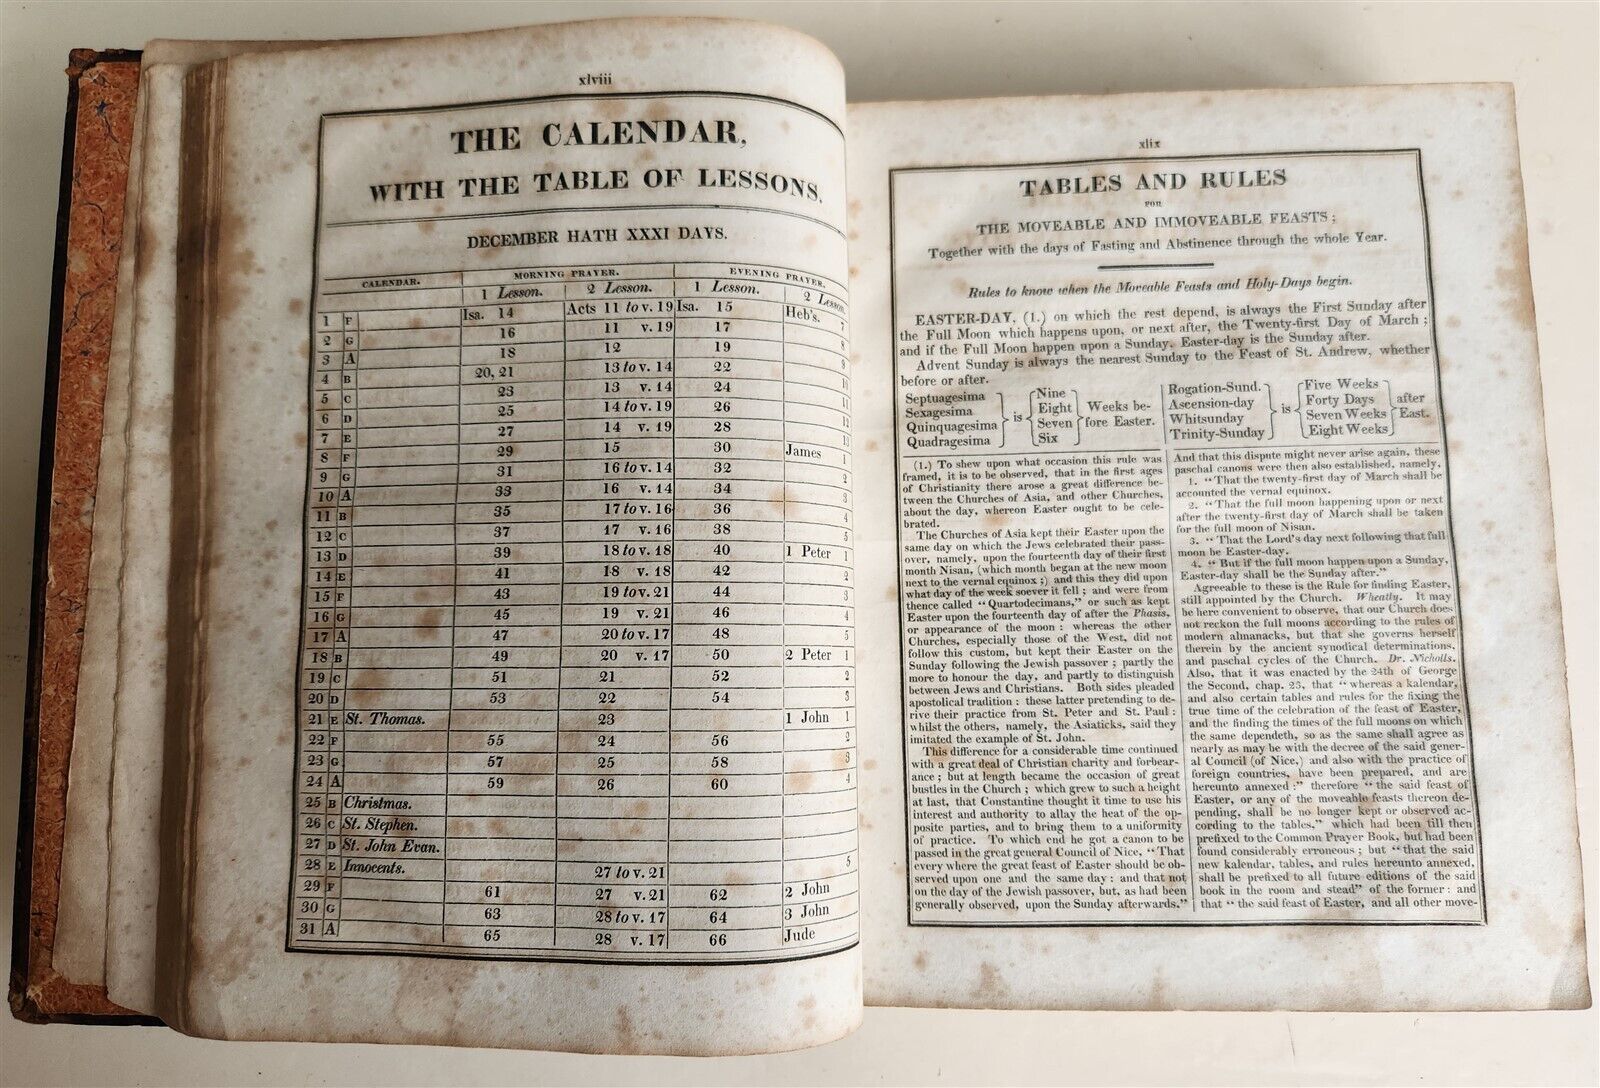 xlviii
THE CALENDAR,
WITH THE TABLE OF LESSONS.
DECEMBER HATH XXXI DAYS.
CALENDAR. MORNING PRAYER. EVENING PRAYER.
1 Lesson. 2 Lesson. 1 Lesson. 2 Lesson.
1 F Isa. 14 Acts 11 to v. 19 Isa. 15 Heb's. 7
2 G 16 11 v. 19 17 8
3 A 18 12 19 9
4 B 20, 21 13 to v. 14 22 10
5 C 23 13 v. 14 24 11
6 D 25 14 to v. 19 26 12
7 E 27 14 v. 19 28 13
8 F 29 15 30 James 1
9 G 31 16 to v. 14 32 2
10 A 33 16 v. 14 34 3
11 B 35 17 to v. 16 36 4
12 C 37 17 v. 16 38 5
13 D 39 18 to v. 18 40 1 Peter 1
14 E 41 18 v. 18 42 2
15 F 43 19 to v. 21 44 3
16 G 45 19 v. 21 46 4
17 A 47 20 to v. 17 48 5
18 B 49 20 v. 17 50 2 Peter 1
19 C 51 21 52 2
20 D 53 22 54 3
21 E St. Thomas. 23 1 John 1
22 F 55 24 56 2
23 G 57 25 58 3
24 A 59 26 60 4
25 B Christmas.
26 C St. Stephen.
27 D St. John Evan.
28 E Innocents. 27 to v. 21 5
29 F 61 27 v. 21 62 2 John
30 G 63 28 to v. 17 64 3 John
31 A 65 28 v. 17 66 Jude
xlix
TABLES AND RULES
FOR
THE MOVEABLE AND IMMOVEABLE FEASTS;
Together with the days of Fasting and Abstinence through the whole Year.
Rules to know when the Moveable Feasts and Holy-Days begin.
EASTER-DAY, (1.) on which the rest depend, is always the First Sunday after
the Full Moon which happens upon, or next after, the Twenty-first Day of March;
and if the Full Moon happen upon a Sunday, Easter-day is the Sunday after.
Advent Sunday is always the nearest Sunday to the Feast of St. Andrew, whether
before or after.
Septuagesima
Sexagesima
Quinquagesima
Quadragesima
is
Nine
Eight
Seven
Six
Weeks be-
fore Easter.
Rogation-Sund.
Ascension-day
Whitsunday
Trinity-Sunday
is
Five Weeks
Forty Days
Seven Weeks
Eight Weeks
after
East.
(1.) To shew upon what occasion this rule was
framed, it is to be observed, that in the first ages
of Christianity there arose a great difference be-
tween the Churches of Asia, and other Churches,
about the day, whereon Easter ought to be cele-
brated.
The Churches of Asia kept their Easter upon the
same day on which the Jews celebrated their pass-
over, namely, upon the fourteenth day of their first
month Nisan, (which month began at the new moon
next to the vernal equinox;) and this they did upon
what day of the week soever it fell; and were from
thence called "Quartodecimans," or such as kept
Easter upon the fourteenth day of after the Phasis,
or appearance of the moon: whereas the other
Churches, especially those of the West, did not
follow this custom, but kept their Easter on the
Sunday following the Jewish passover; partly the
more to honour the day, and partly to distinguish
between Jews and Christians. Both sides pleaded
apostolical tradition: these latter pretending to de-
rive their practice from St. Peter and St. Paul:
whilst the others, namely, the Asiaticks, said they
imitated the example of St. John.
This difference for a considerable time continued
with a great deal of Christian charity and forbear-
ance; but at length became the occasion of great
bustles in the Church; which grew to such a height
at last, that Constantine thought it time to use his
interest and authority to allay the heat of the op-
posite parties, and to bring them to a uniformity
of practice. To which end he got a canon to be
passed in the great general Council of Nice, "That
every where the great feast of Easter should be ob-
served upon one and the same day: and that not
on the day of the Jewish passover, but, as had been
generally observed, upon the Sunday afterwards."
And that this dispute might never arise again, these
paschal canons were then also established, namely,
1. "That the twenty-first day of March shall be
accounted the vernal equinox.
2. "That the full moon happening upon or next
after the twenty-first day of March shall be taken
for the full moon of Nisan.
3. "That the Lord's day next following that full
moon be Easter-day.
4. "But if the full moon happen upon a Sunday,
Easter-day shall be the Sunday after."
Agreeable to these is the Rule for finding Easter,
still appointed by the Church. Wheatly. It may
be here convenient to observe, that our Church does
not reckon the full moons according to the rules of
modern almanacks, but that she governs herself
therein by the ancient synodical determinations,
and paschal cycles of the Church. Dr. Nicholls.
Also, that it was enacted by the 24th of George
the Second, chap. 23, that "whereas a kalendar,
and also certain tables and rules for the fixing the
true time of the celebration of the feast of Easter,
and the finding the times of the full moons on which
the same dependeth, so as the same shall agree as
nearly as may be with the decree of the said gener-
al Council (of Nice,) and also with the practice of
foreign countries, have been prepared, and are
hereunto annexed:" therefore "the said feast of
Easter, or any of the moveable feasts thereon de-
pending, shall be no longer kept or observed ac-
cording to the tables," which had been till then
prefixed to the Common Prayer Book, but had been
found considerably erroneous; but "that the said
new kalendar, tables, and rules hereunto annexed,
shall be prefixed to all future editions of the said
book in the room and stead" of the former: and
that "the said feast of Easter, and all other move-